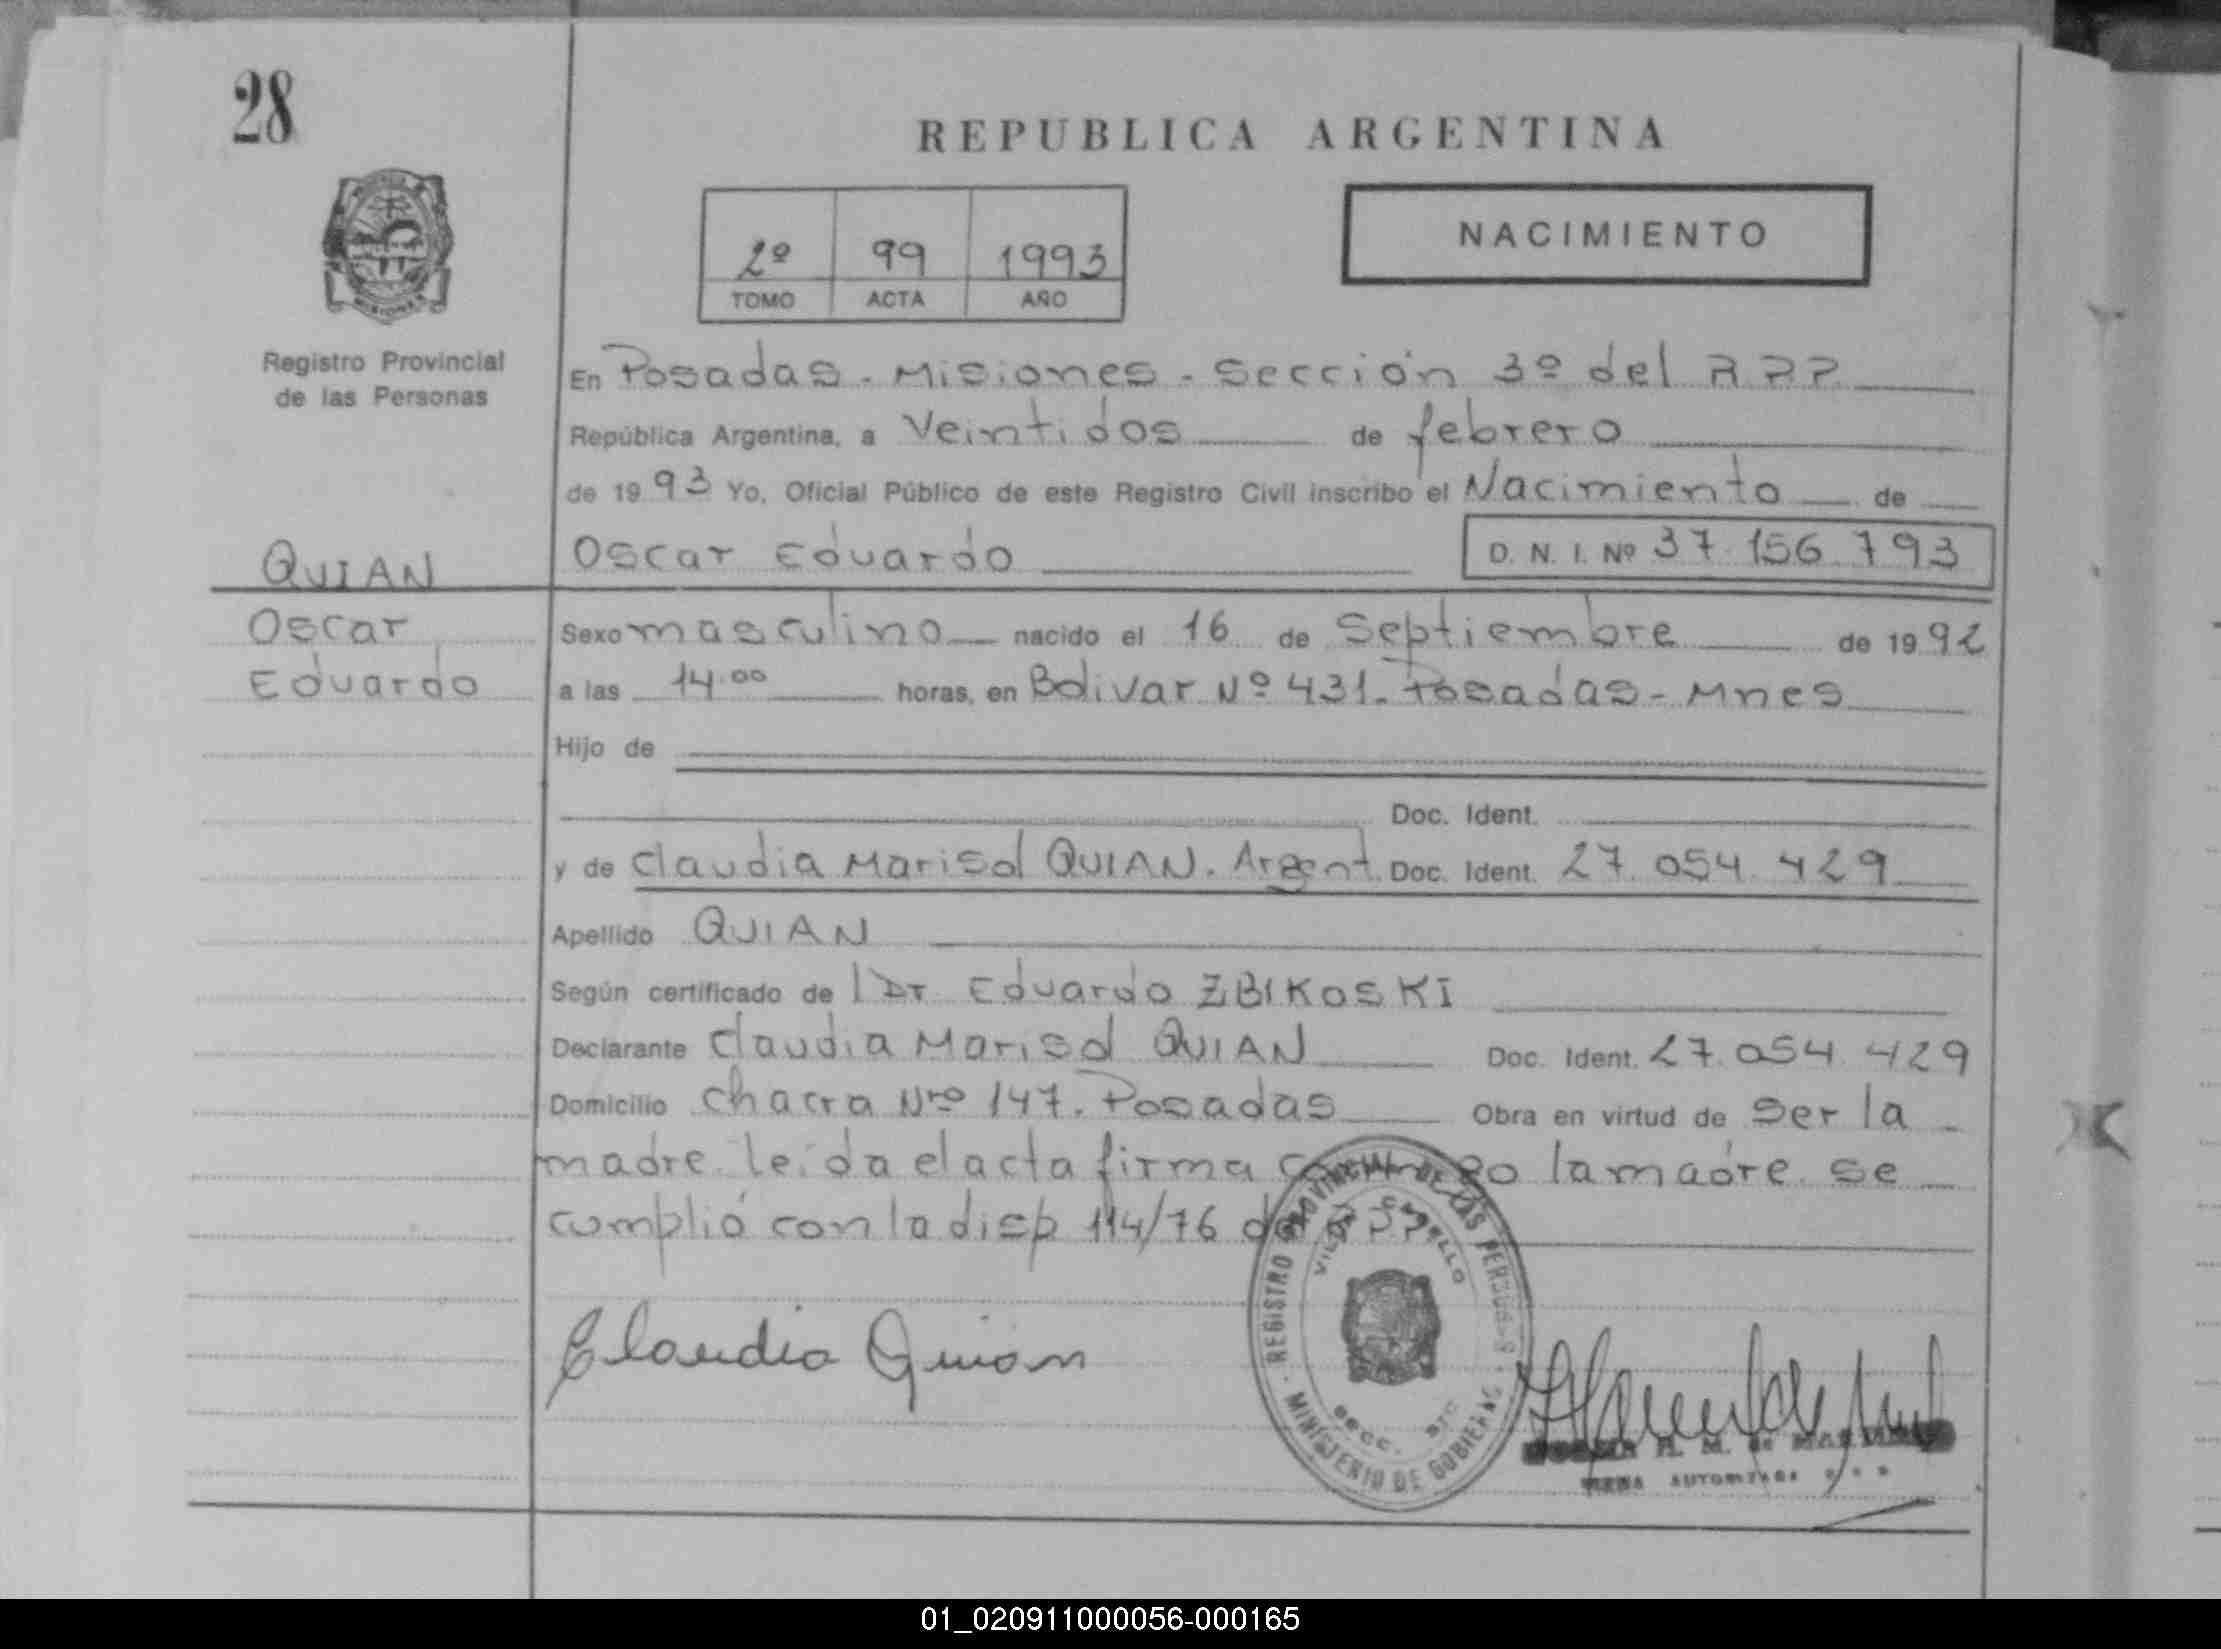 28
REPUBLICA ARGENTINA
NACIMIENTO
2º 99 1993
TOMO ACTA AÑO
Registro Provincial
de las Personas
En Posadas - Misiones - Sección 3º del RPP
República Argentina, a Veintidos de febrero
de 1993 Yo, Oficial Público de este Registro Civil inscribo el Nacimiento de
QUIAN
Oscar Eduardo D. N. I. Nº 37.156.793
Oscar
Eduardo
Sexo masculino nacido el 16 de Septiembre de 1992
a las 14.00 horas, en Bolivar Nº 431. Posadas - Mnes
Hijo de
Doc. Ident.
y de Claudia Marisol QUIAN. Argent. Doc. Ident. 27.054.429
Apellido QUIAN
Según certificado de l Dr. Eduardo ZBIKOSKI
Declarante Claudia Marisol QUIAN Doc. Ident. 27.054.429
Domicilio Chacra Nro 147. Posadas Obra en virtud de ser la
madre. leída el acta firma conmigo la madre. se
cumplió con la disp 114/76 del RPP
Claudia Quian
REGISTRO PROVINCIAL DE LAS PERSONAS
VILLA CABELLO
SECC. 3ra
MINISTERIO DE GOBIERNO
FIRMA AUTORIZADA
01_020911000056-000165